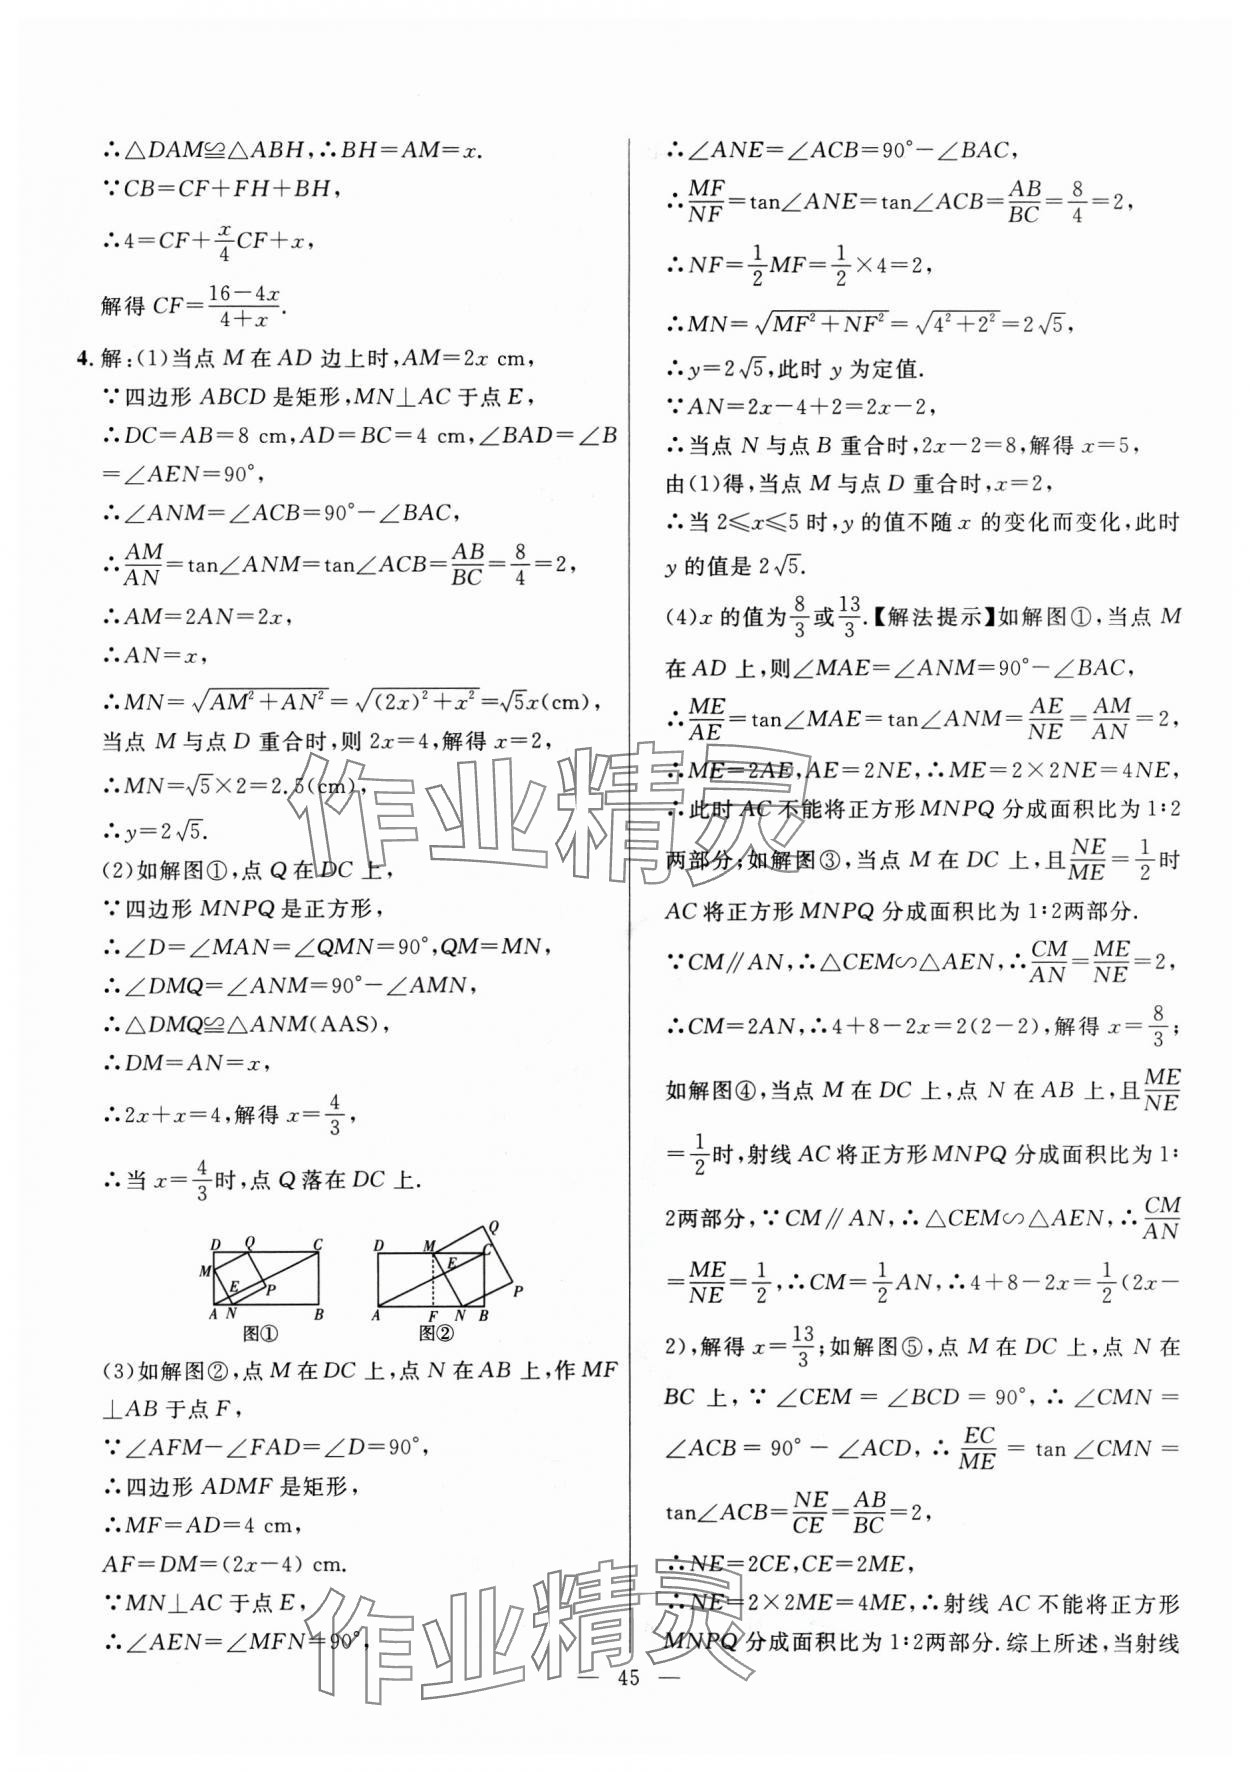 ∴△DAM≌△ABH,∴BH=AM=x.
∵CB=CF+FH+BH,
∴4=CF+x/4CF+x,
解得 CF=(16-4x)/(4+x).
4. 解:(1)当点 M 在 AD 边上时,AM=2x cm,
∵四边形 ABCD 是矩形,MN⊥AC于点E,
∴DC=AB=8 cm,AD=BC=4 cm,∠BAD=∠B
=∠AEN=90°,
∴∠ANM=∠ACB=90°-∠BAC,
∴AM/AN=tan∠ANM=tan∠ACB=AB/BC=8/4=2,
∴AM=2AN=2x,
∴AN=x,
∴MN=√(AM²+AN²)=√((2x)²+x²)=√5x(cm),
当点 M 与点 D 重合时,则 2x=4,解得 x=2,
∴MN=√5×2=2.5(cm),
∴y=2√5.
(2)如解图①,点 Q 在 DC 上,
∵四边形 MNPQ 是正方形,
∴∠D=∠MAN=∠QMN=90°,QM=MN,
∴∠DMQ=∠ANM=90°-∠AMN,
∴△DMQ≌△ANM(AAS),
∴DM=AN=x,
∴2x+x=4,解得 x=4/3,
∴当 x=4/3时,点 Q 落在 DC 上.
D Q C
M
E P
A N B
图①
Q
D M C
E
P
A F N B
图②
(3)如解图②,点 M 在 DC 上,点 N 在 AB 上,作 MF
⊥AB于点F,
∵∠AFM-∠FAD=∠D=90°,
∴四边形 ADMF 是矩形,
∴MF=AD=4 cm,
AF=DM=(2x-4) cm.
∵MN⊥AC于点E,
∴∠AEN=∠MFN=90°,
∴∠ANE=∠ACB=90°-∠BAC,
∴MF/NF=tan∠ANE=tan∠ACB=AB/BC=8/4=2,
∴NF=1/2MF=1/2×4=2,
∴MN=√(MF²+NF²)=√(4²+2²)=2√5,
∴y=2√5,此时 y 为定值.
∵AN=2x-4+2=2x-2,
∴当点 N 与点 B 重合时,2x-2=8,解得 x=5,
由(1)得,当点 M 与点 D 重合时,x=2,
∴当 2≤x≤5 时,y 的值不随 x 的变化而变化,此时
y 的值是 2√5.
(4)x 的值为8/3或13/3.【解法提示】如解图①,当点 M
在 AD 上,则∠MAE=∠ANM=90°-∠BAC,
∴ME/AE=tan∠MAE=tan∠ANM=AE/NE=AM/AN=2,
∴ME=2AE,AE=2NE,∴ME=2×2NE=4NE,
∴此时 AC 不能将正方形 MNPQ 分成面积比为 1:2
两部分;如解图③,当点 M 在 DC 上,且NE/ME=1/2时
AC将正方形 MNPQ 分成面积比为 1:2两部分.
∵CM∥AN,∴△CEM∽△AEN,∴CM/AN=ME/NE=2,
∴CM=2AN,∴4+8-2x=2(2-2),解得 x=8/3;
如解图④,当点 M 在 DC 上,点 N 在 AB 上,且ME/NE
=1/2时,射线 AC 将正方形 MNPQ 分成面积比为 1:
2两部分,∵CM∥AN,∴△CEM∽△AEN,∴CM/AN
=ME/NE=1/2,∴CM=1/2AN,∴4+8-2x=1/2(2x-
2),解得 x=13/3;如解图⑤,点 M 在 DC 上,点 N 在
BC 上,∵∠CEM=∠BCD=90°,∴∠CMN=
∠ACB=90°-∠ACD,∴EC/ME=tan∠CMN=
tan∠ACB=NE/CE=AB/BC=2,
∴NE=2CE,CE=2ME,
∴NE=2×2ME=4ME,∴射线 AC 不能将正方形
MNPQ 分成面积比为 1:2两部分.综上所述,当射线
— 45 —
作业精灵
作业精灵